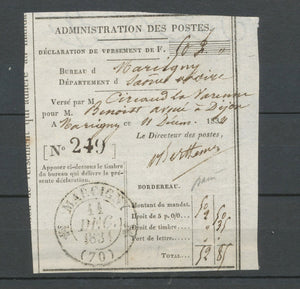 ADMINISTRATION DES POSTES.
DÉCLARATION DE VERSEMENT DE F. 50 f "
BUREAU d Marcigny
DÉPARTEMENT d Saone et Loire
Versé par M. Ciriaud La Varenne
pour M. Benoist avoué à Dijon
A Marcigny ce 11 Décem. 1834
Le Directeur des postes,
[N° 249]
Apposer ci-dessous le timbre
du bureau qui délivre la pré-
sente déclaration.
BORDEREAU.
Montant du mandat. 50 "
Droit de 5 p. 0/0 2 50
Droit de timbre " 35
Port de lettre "
TOTAL 52 85
MARCIGNY
11
DEC.
1834
(70)